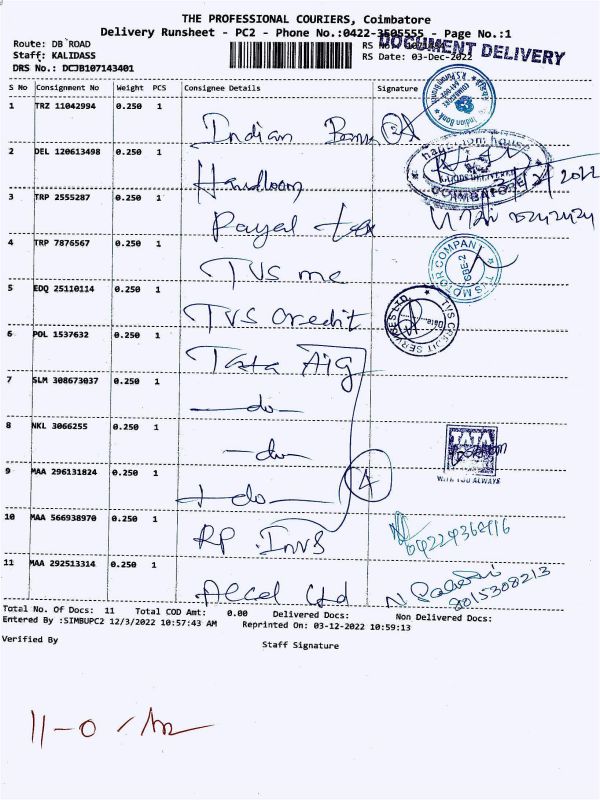 THE PROFESSIONAL COURIERS, Coimbatore
Delivery Runsheet - PC2 - Phone No.:0422-3505555 - Page No.:1
DOCUMENT DELIVERY
Route: DB ROAD
Staff: KALIDASS RS Date: 03-Dec-2022
DRS No.: DCJB107143401
S No Consignment No Weight PCS Consignee Details Signature
1 TRZ 11042994 0.250 1 Indian Bank
Indian Bank
2 DEL 120613498 0.250 1 Handloom
COIMBATORE
3 TRP 2555287 0.250 1 Payal tex
4 TRP 7876567 0.250 1 TVS mc
TVS MOTOR COMPANY
5 EDQ 25110114 0.250 1 TVS Credit
TVS CREDIT SERVICES LTD
6 POL 1537632 0.250 1 Tata AIG
7 SLM 308673037 0.250 1 do
8 NKL 3066255 0.250 1 do
TATA
WITH YOU ALWAYS
9 MAA 296131824 0.250 1 do
4
10 MAA 566938970 0.250 1 RP Invs
11 MAA 292513314 0.250 1 Ltd
8015308213
Total No. Of Docs: 11 Total COD Amt: 0.00 Delivered Docs: Non Delivered Docs:
Entered By :SIMBUPC2 12/3/2022 10:57:43 AM Reprinted On: 03-12-2022 10:59:13
Verified By
Staff Signature
11-0